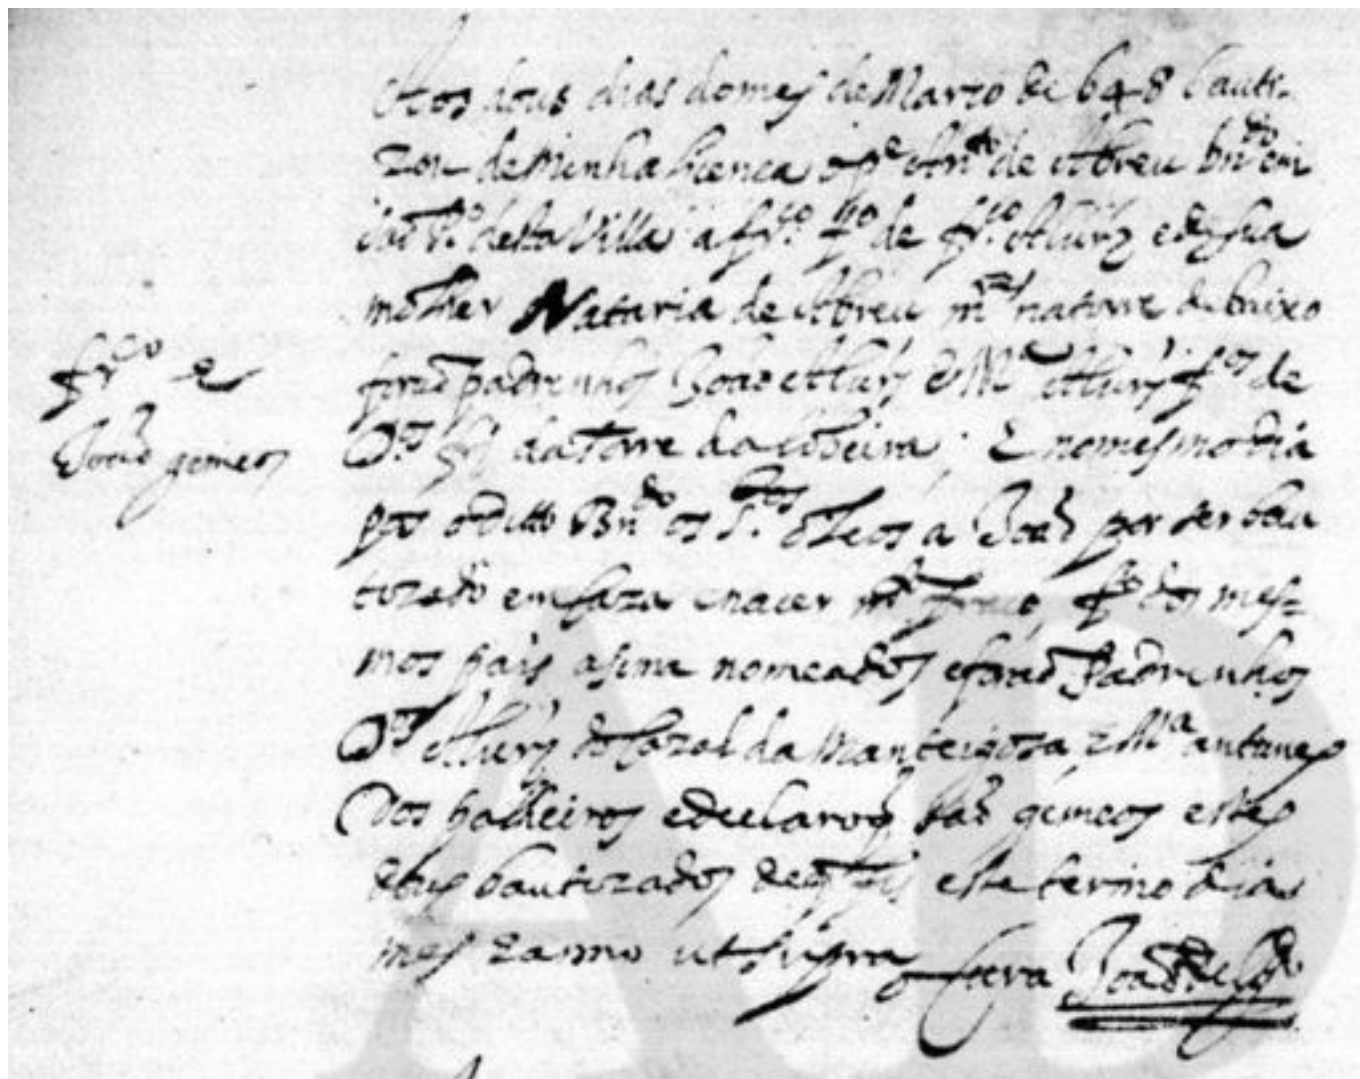 Aos dous dias do mes de Março de 648 bauti-
zou de minha licença o pe Anto de Abreu bndo em
desta Villa a frco fo de frco Alurz e de sua
molher Nataria de Abreu mres na torre de baixo
forão padrenhos João Alurz e Ma Alurz fos de
Dos da torre da E no mesmo dia
frco e
João gemeos
pos o ditto Bndo os stos oleos a João por ser bau
tizado em caza e nacer fo dos mes-
mos pais asima nomeados e forão Padrenhos
Dos Alurz do Cazal da Manteigoza e Ma antunes
Dos palheiros e declaro q são gemeos estes
dous bautizados de q fis este termo dia
mes e anno ut supra o Cura João
AD